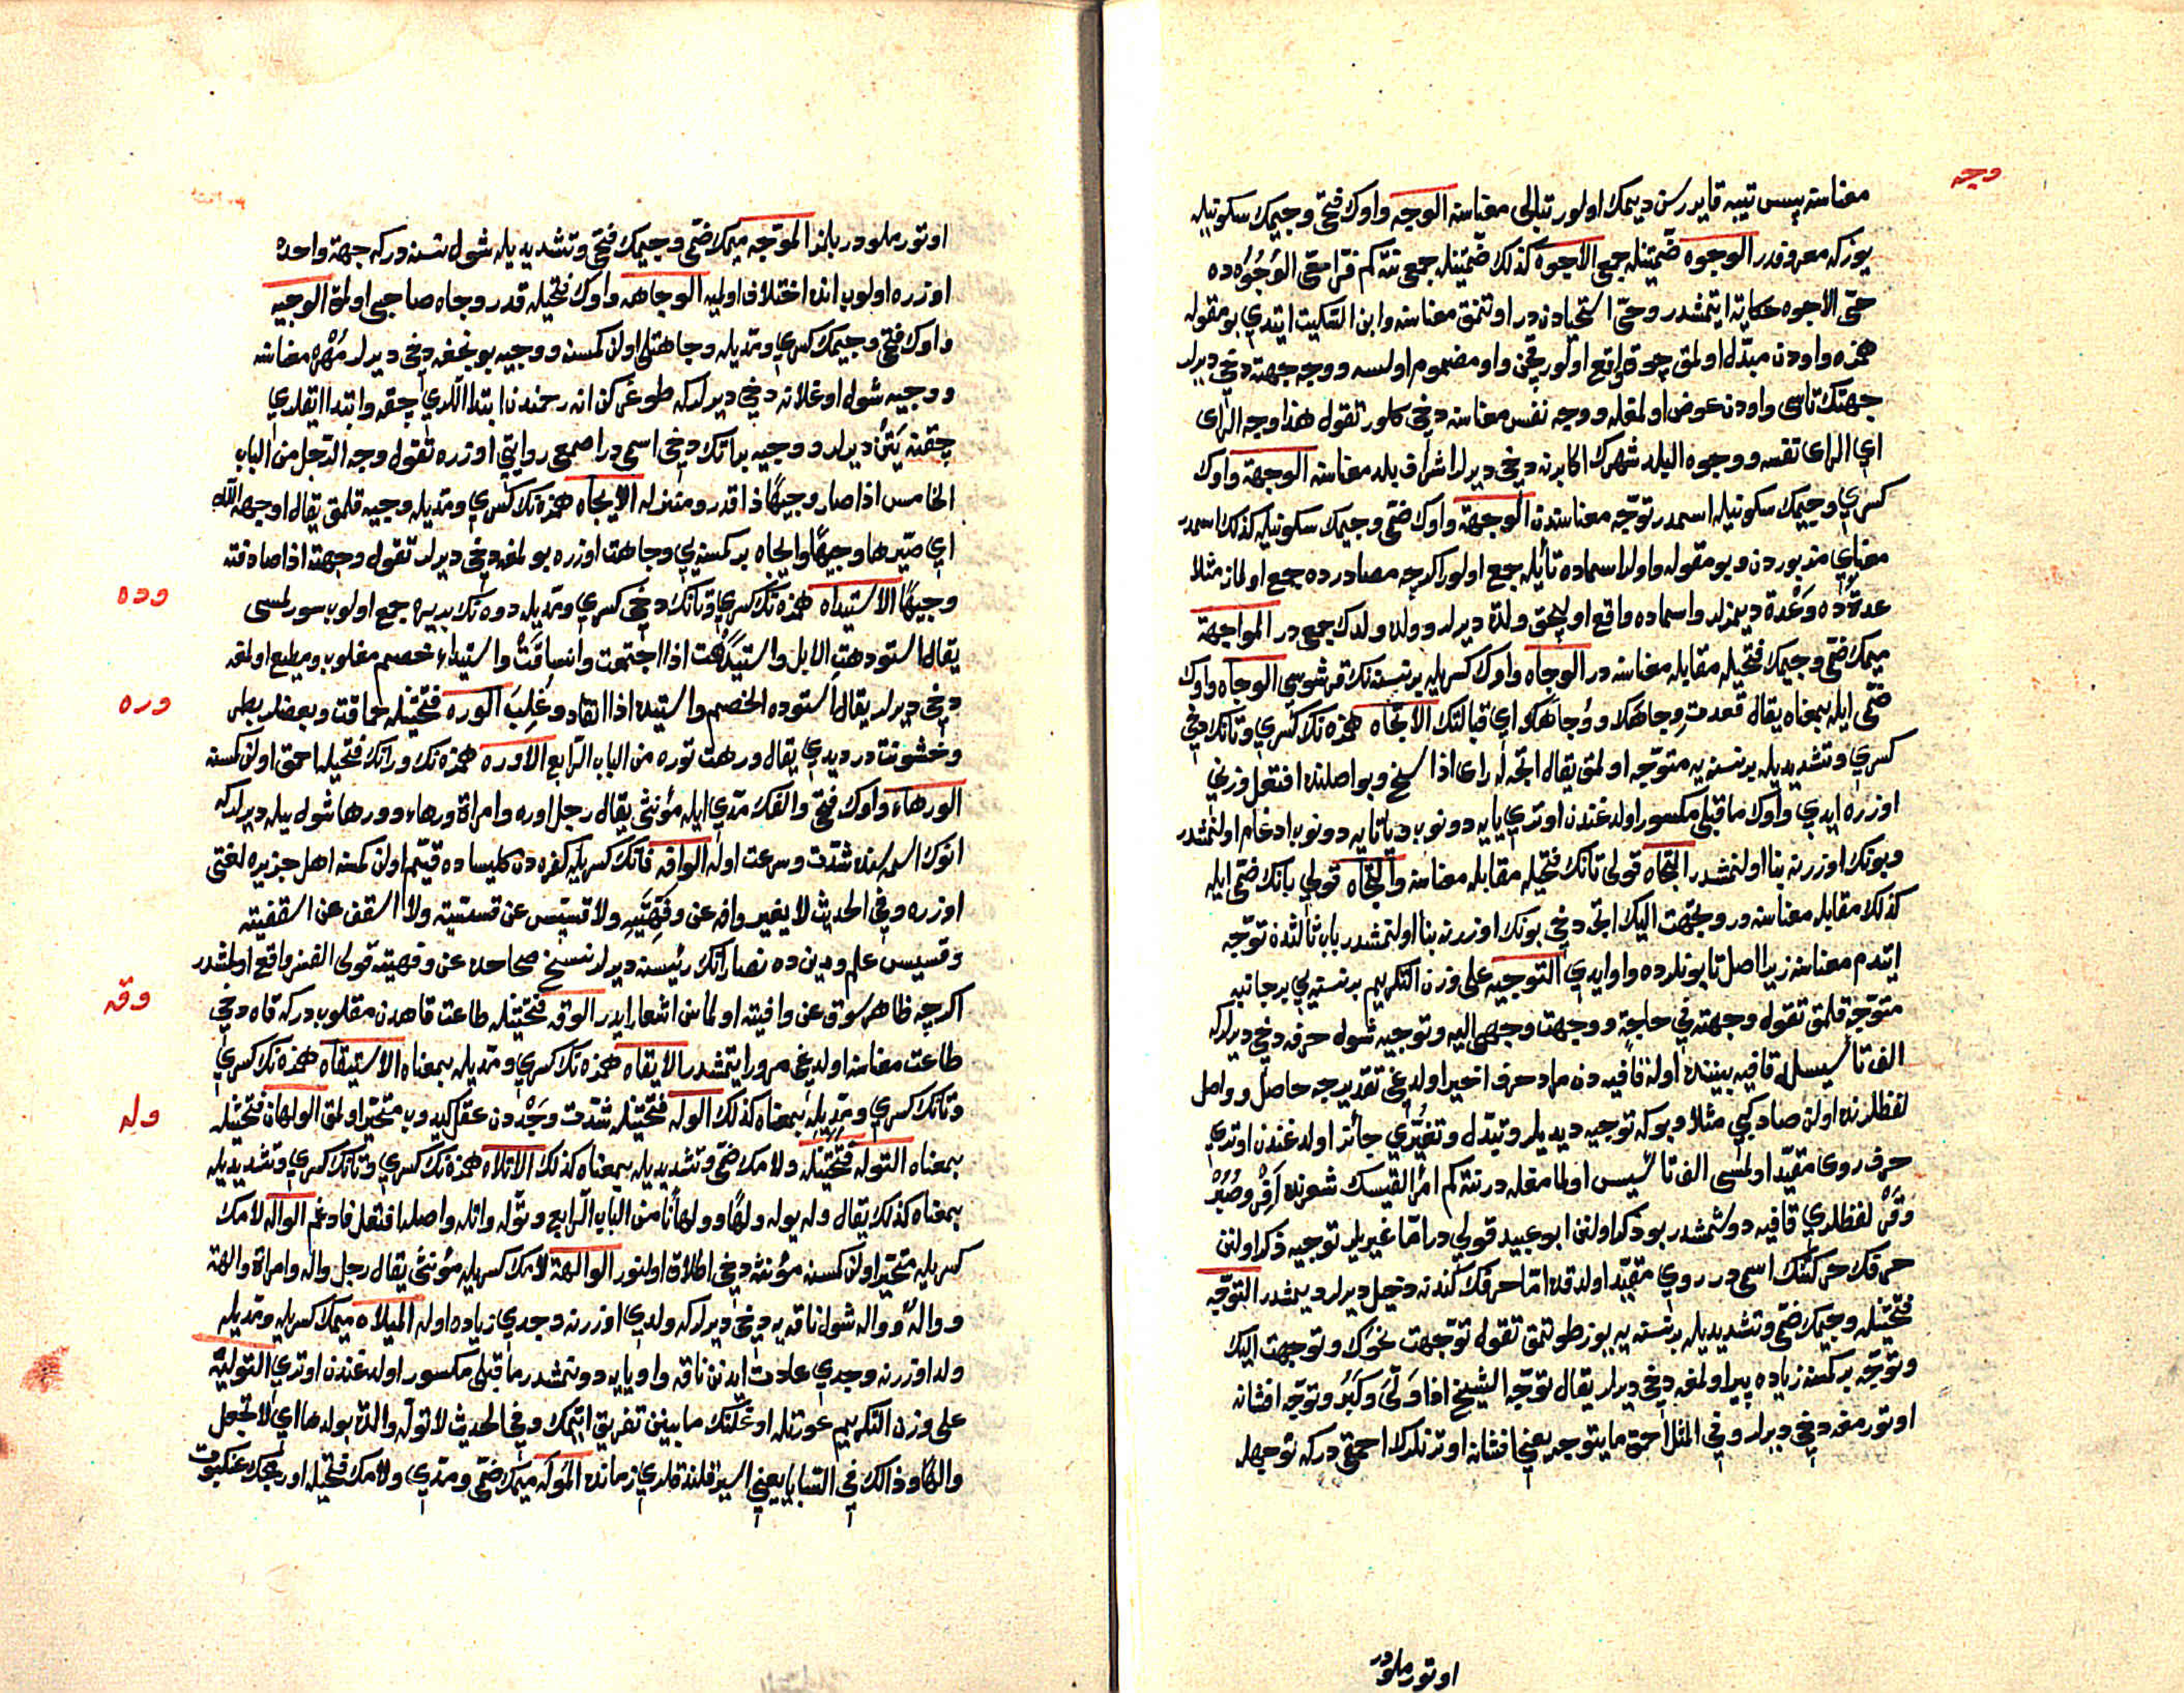 وجه
معناسنه پس تیبه قایورسن دیمک اولور تبالی معناسنه الوجه واوک فتحی وجیمک سکونیله
یوزکه معروفدر الوجوه ضمتینله جمعی الاجوه کذلک ضمتینله جمعی نتکم فرا حقی الوجوه ده
حقی الاجوه حکایة ایتمشدر وحقی استحیادن در اوتنمق معناسنه وابن السکیت ایتدی بو مقوله
همزه واودن مبدل اولمق چوق واقع اولور قچن واو مضموم اولسه ووجه جهته دخی دیرلر
جهتک تاسی واودن عوض اولمغله ووجه نفس معناسنه دخی کلور تقول هذا وجه الرای
ای الرای نفسه ووجوه البلد شهرک اکابرنه دخی دیرلر اشراف بلد معناسنه الوجهة واوک
کسری وجیمک سکونیله اسمدر توجه معناسندن الوجهة واوک ضمی وجیمک سکونیله کذلک اسمدر
معنای مزبوردن وبو مقوله واولر اسماده تا یله جمع اولور اکرچه مصادرده جمع اولماز مثلا
عدة ده وعدة دیمزلر واسماده واقع اولیجق ولدة دیرلر وولده ولدک جمعی در المواجهة
میمک ضمی وجیمک فتحیله مقابله معناسنه در الوجاه واوک کسریله بر نسنه نک قرشوسی الوجاه واوک
ضمی ایله بمعناه یقال قعدت وجاهک ووجاهک ای قبالتک الاتجاه همزه نک کسری وتانک دخی
کسری وتشدیدیله بر نسنه یه متوجه اولمق یقال اتجه له رای اذا سنح وبو اصلنده افتعل وزنی
اوزره ایدی واوک ماقبلی مکسور اولدغندن اوتری یایه دونوب ویا تایه دونوب ادغام اولنمشدر
وبونک اوزرنه بنا اولنمشدر التجاه قولی تانک فتحیله مقابله معناسنه والتجاه قولی تانک ضمی ایله
کذلک مقابله معناسنه در وتجهت الیک اتجه دخی بونک اوزرنه بنا اولنمشدر باب ثالثدن توجه
ایتدم معناسنه زیرا اصل تا بونلرده واو ایدی التوجیه علی وزن التکریم بر نسنه یی بر جانبه
متوجه قلمق تقول وجهته فی حاجة ووجهت وجهی الیه وتوجیه شول حرفه دخی دیرلرکه
الف تأسیسله قافیه بیننده اوله قافیه دن مراد حرف اخیر اولدغی تقدیرجه حاصل وواصل
لفظلرنده اولن صاد کبی مثلا وبوکه توجیه دیدیلر وتبدل وتغیری جائز اولدغندن اوتری
حرف روی مقید اولمسی الف تأسیس اولمامغله در نتکم امرأ القیسک شعرنده افر وصبر
وقر لفظلری قافیه دوشمشدر بو ذکر اولنن ابو عبید قولی در اما غیریلر توجیه ذکر اولنن
حرفک حرکتنک اسمی در روی مقید اولدقده اما حرفک کندنه دخیل دیرلر دیمشدر التوجه
فتحتینله وجیمک ضمی وتشدیدیله بر نسنه یه یوز طوتمق تقول توجهت نحوک وتوجهت الیک
وتوجه بر کمسنه زیاده پیر اولمغه دخی دیرلر یقال توجه الشیخ اذا ولی وکبر وتوجه افشانه
اوتورمغه دخی دیرلر وفی المثل احمق ما یتوجه یعنی افشانه اوتزنلرکه احمق درکه توجیهله
اوتورملودر
اوتورملودر بلند الموجه میمک ضمی وجیمک فتحی وتشدیدیله شول نسنه درکه جهة واحده
اوزره اولوب انده اختلاف اولمیه الوجاهه واوک فتحیله قدر وجاه صاحبی اولمق الوجیه
واوک فتحی وجیمک کسری ومدیله وجاهتلی اولن کمسنه ووجیه بونجغه دخی دیرلر مهره معناسنه
ووجیه شول اوغلانه دخی دیرلرکه طوغرکن انه رحمندن ابتدا اللری چقه وابتدا ایقلری
چقنه یتن دیرلر ووجیه بر اتک دخی اسمی در اصمعی روایتی اوزره تقول وجه الرجل من الباب
الخامس اذا صار وجیها ذا قدر ومنزله الایجاه همزه نک کسری ومدیله وجیه قلمق یقال اوجهه الله
ای صیره وجیها وایجاه بر کمسنه یی وجاهت اوزره بولمغه دخی دیرلر تقول اوجهته اذا صادفته
وده
وجیها الاستیداه همزه نک کسری وتانک دخی کسری ومدیله دوه نک بدیره جمع اولوب سورلمسی
یقال استودهت الابل واستیدهت اذا اجتمعت وانساقت واستیداه خصم مغلوب ومطیع اولمغه
وره
دخی دیرلر یقال استوده الخصم واستیده اذا انقاد وغلب الوره فتحتینله حماقت وبعضلر بطر
وخشونت در دیدی یقال ورهت توره من الباب الرابع الاوره همزه نک ورانک فتحیله احمق اولن کمسنه
الورهاء واوک فتحی والفک مدی ایله مؤنثی یقال رجل اوره وامراة ورهاء وورها شول ییله دیرلرکه
انوک اسمه سنده شدت وسرعت اوله الوافه فانک کسریله کفره دن کلیساده قیم اولن کمسنه اهل جزیره لغتی
اوزره وفی الحدیث لا یغیر وافه عن وفهیته ولا قسیس عن قسیسیته ولا اسقف عن اسقفیته
وقسیس علم ودین ده نصارانک رئیسنه دیرلر نسخ صحاحده عن وفهیته قولی الفسز واقع اولمشدر
وقه
اکرچه ظاهر سوق عن وافیته اولماسن اشعار ایدر الوقه فتحتینله طاعت قاهدن مقلوب درکه قاه دخی
طاعت معناسنه اولدیغی مرور ایتمشدر الایقاه همزه نک کسری ومدیله بمعناه الاستیقاه همزه نک کسری
وله
وتانک کسری ومدیله بمعناه کذلک الوله فتحتینله شدت وجددن عقل کیدوب متحیر اولمق الولهان فتحتینله
بمعناه التوله فتحتینله ولامک ضمی وتشدیدیله بمعناه کذلک الاتلاه همزه نک کسری وتانک کسری وتشدیدیله
بمعناه کذلک یقال وله یوله ولها وولهانا من الباب الرابع وتوله واتله واصله افتعل فادغم الواله لامک
کسریله متحیر اولن کمسنه مؤنثه دخی اطلاق اولنور الوالهة لامک کسریله مؤنثی یقال رجل واله وامراة والهة
وواله وواله شول ناقه یه دخی دیرلرکه ولدی اوزرنه وجدی زیاده اوله المیلاه میمک کسریله ومدیله
ولد اوزرنه وجدی عادت ایدنن ناقه واو یایه دونمشدر ماقبلی مکسور اولدغندن اوتری التولیة
علی وزن التکریم عورتله اوغلنک مابینن تفریق ایتمک وفی الحدیث لا توله والدة بولدها ای لا تجعل
والها وذالک فی السبایا یعنی اسیر قلندقلری زمانده الموله میمک ضمی ومدی ولامک فتحیله اورمجک عنکبوت